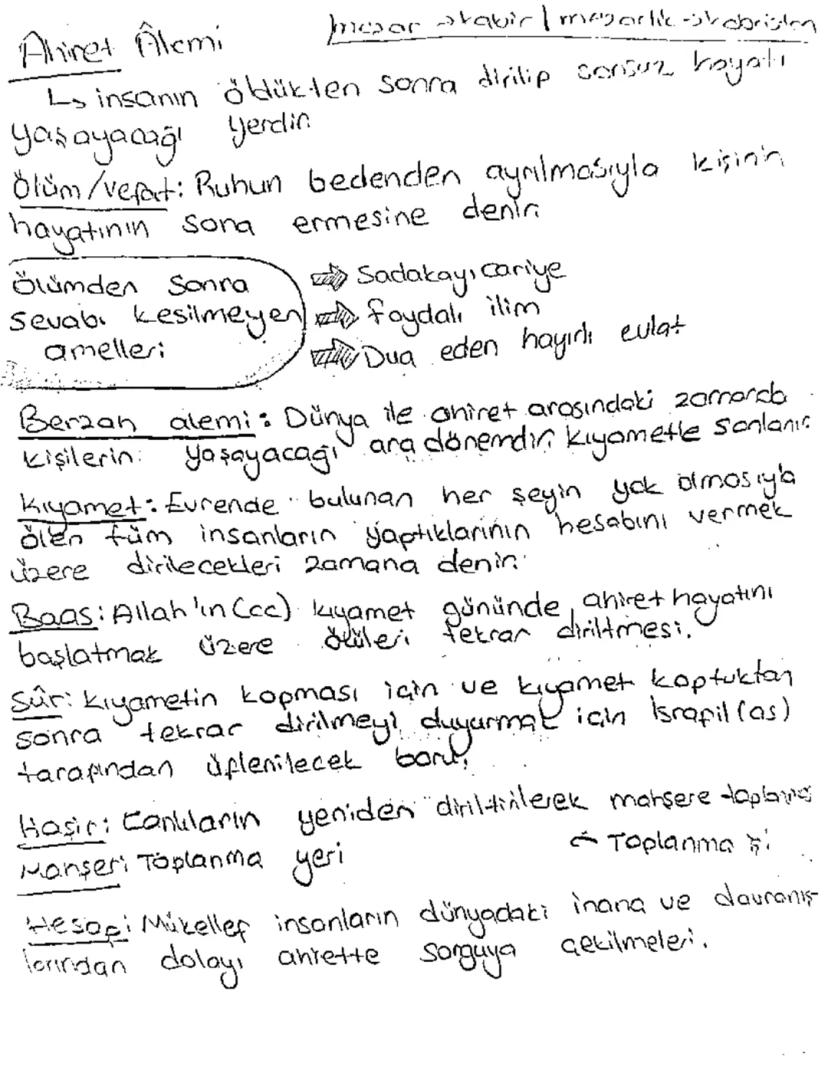 Ahiret Âlemi
mezar → kabir / mezarlık → kabristan
↳ insanın öldükten sonra dirilip sonsuz hayatı
yaşayacağı yerdir.
Ölüm/vefat: Ruhun bedenden ayrılmasıyla kişinin
hayatının sona ermesine denir.
Ölümden sonra
sevabı kesilmeyen
amelleri
⇒ Sadakayı cariye
⇒ faydalı ilim
⇒ Dua eden hayırlı evlat
Berzah alemi: Dünya ile ahiret arasındaki zamanda
kişilerin yaşayacağı ara dönemdir. kıyametle sonlanır
Kıyamet: Evrende bulunan her şeyin yok olmasıyla
ölen tüm insanların yaptıklarının hesabını vermek
üzere dirilecekleri zamana denir.
Baas: Allah'ın (cc) kıyamet gününde, ahiret hayatını
başlatmak üzere ölüleri tekrar diriltmesi.
Sûr: kıyametin kopması için ve kıyamet koptuktan
sonra tekrar dirilmeyi duyurmak için İsrafil (as)
tarafından üflenilecek boru.
Haşir: Canlıların yeniden diriltilerek mahşere toplanma
← Toplanma işi
Mahşer: Toplanma yeri
Hesap: Mükellef insanların dünyadaki inanç ve davranış-
larından dolayı ahirette sorguya çekilmeleri.